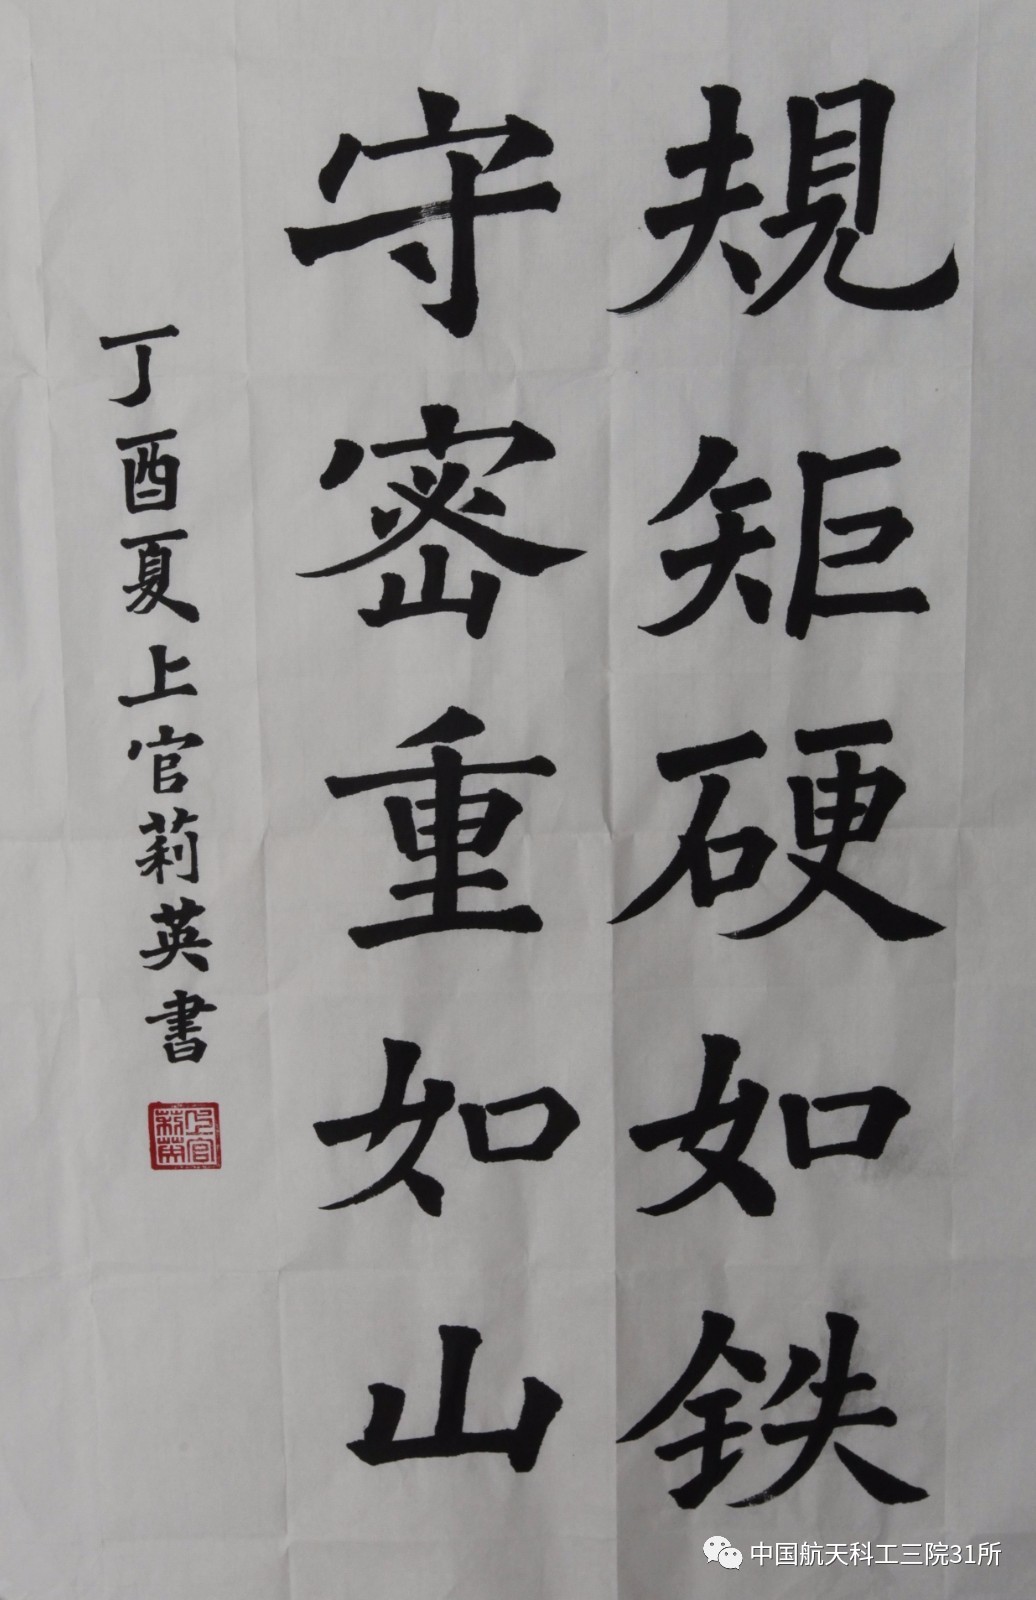 規矩硬如鉄
守密重如山
丁酉夏上官莉英書
上官莉英
中国航天科工三院31所